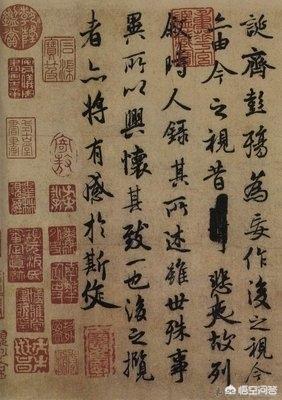 誕齊彭殤為妄作後之視今
亦由今之視昔悲夫故列
敘時人錄其所述雖世殊事
異所以興懷其致一也後之攬
者亦將有感於斯文
悟空问答